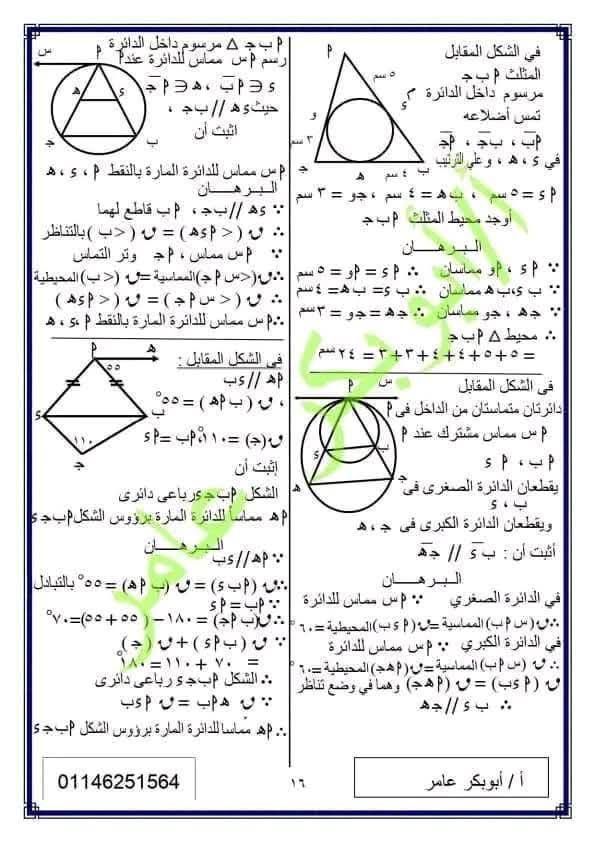 في الشكل المقابل
المثلث ا ب ج
مرسوم داخل الدائرة م
تمس أضلاعه
ا ب ، ب ج ، ا ج
في ء ، ه ، و على الترتيب
ا ء = ٥ سم ، ب ه = ٤ سم ، جو = ٣ سم
أوجد محيط المثلث ا ب ج
البرهان
∵ ا ء ، ا و مماسان ∴ ا ء = ا و = ٥ سم
∵ ب ء ، ب ه مماسان ∴ ب ء = ب ه = ٤ سم
∵ ج ه ، جو مماسان ∴ ج ه = جو = ٣ سم
∴ محيط △ ا ب ج
= ٥ + ٥ + ٤ + ٤ + ٣ + ٣ = ٢٤ سم
ا
٥ سم
ء
و
٣ سم
ج
ه
٤ سم
ب
فى الشكل المقابل
دائرتان متماستان من الداخل فى ا
ا س مماس مشترك عند ا
ا ب ، ا ء
يقطعان الدائرة الصغرى فى
ب ، ء
ويقطعان الدائرة الكبرى فى ج ، ه
أثبت أن : ب ء // ج ه
البرهان
في الدائرة الصغري ∵ ا س مماس للدائرة
∴ ق ( س ا ب ) المماسية = ق ( ا ء ب ) المحيطية = ٦٠°
في الدائرة الكبري ∵ ا س مماس للدائرة
∴ ق ( س ا ب ) المماسية = ق ( ا ه ج ) المحيطية = ٦٠°
ق ( ا ء ب ) = ق ( ا ه ج ) وهما في وضع تناظر
∴ ب ء // ج ه
س
ا
ب
ء
ج
ه
ا ب ج △ مرسوم داخل الدائرة
رسم ا س مماس للدائرة عند ا
ء ∋ ا ب ، ه ∋ ا ج
حيث ء ه // ب ج ،
اثبت أن
ا س مماس للدائرة المارة بالنقط ا ، ء ، ه
البرهان
∵ ء ه // ب ج ، ا ب قاطع لهما
∴ ق ( > ا ء ه ) = ق ( > ب ) بالتناظر
∵ ا س مماس ، ا ج وتر التماس
∴ ق ( > س ا ج ) المماسية = ق ( > ب ) المحيطية
∴ ق ( > س ا ج ) = ق ( > ا ء ه )
∴ ا س مماس للدائرة المارة بالنقط ا ، ء ، ه
س
ا
ه
ء
ج
ب
فى الشكل المقابل :
ا ه // ء ب
، ق ( ب ا ه ) = ٥٥°
ق ( ج ) = ١١٠° ، ا ب = ا ء
إثبت أن
الشكل ا ب ج ء رباعى دائرى
ا ه مماسا للدائرة المارة برؤوس الشكل ا ب ج ء
البرهان
∵ ا ه // ء ب
∴ ق ( ا ب ء ) = ق ( ب ا ه ) = ٥٥° بالتبادل
∵ ا ب = ا ء
∴ ق ( ب ا ء ) = ١٨٠ − ( ٥٥ + ٥٥ ) = ٧٠°
∵ ق ( ب ا ء ) + ق ( ج )
= ٧٠ + ١١٠ = ١٨٠°
∴ الشكل ا ب ج ء رباعى دائرى
∵ ق ه ا ب = ق ا ء ب
∴ ا ه مماسا للدائرة المارة برؤوس الشكل ا ب ج ء
ه
ا
٥٥
ء
ب
١١٠
ج
أ/أبو بكر عامر
أ / أبوبكر عامر
١٦
01146251564